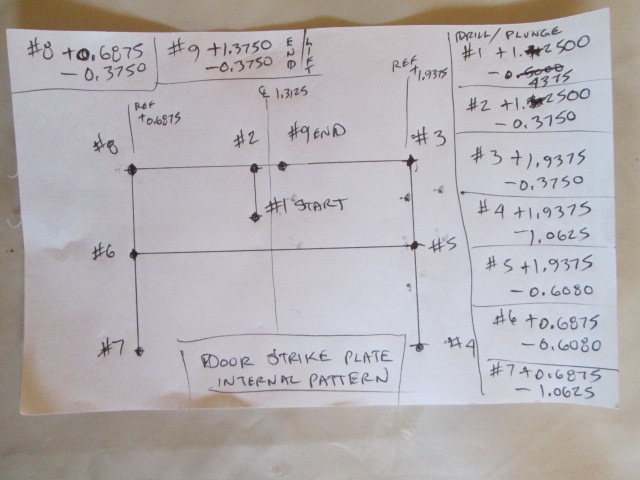 #8 +0.6875
-0.3750
#9 +1.3750
-0.3750
END
LIFT
REF
+0.6875
℄ 1.3125
REF
+1.9375
DRILL/PLUNGE
#1 +1.2500
-0.6000
4375
#2 +1.2500
-0.3750
#3 +1.9375
-0.3750
#4 +1.9375
-1.0625
#5 +1.9375
-0.6080
#6 +0.6875
-0.6080
#7 +0.6875
-1.0625
#8
#2
#9 END
#3
#1 START
#6
#5
#7
#4
DOOR STRIKE PLATE
INTERNAL PATTERN